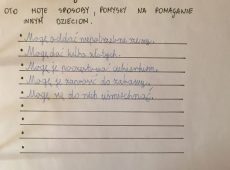 OTO MOJE SPOSOBY, POMYSŁY NA POMAGANIE
INNYM DZIECIOM.
Mogę oddać niepotrzebne rzeczy.
Mogę dać kilka złotych.
Mogę je poczęstować cukierkiem.
Mogę je zaprosić do zabawy.
Mogę się do nich uśmiechnąć.